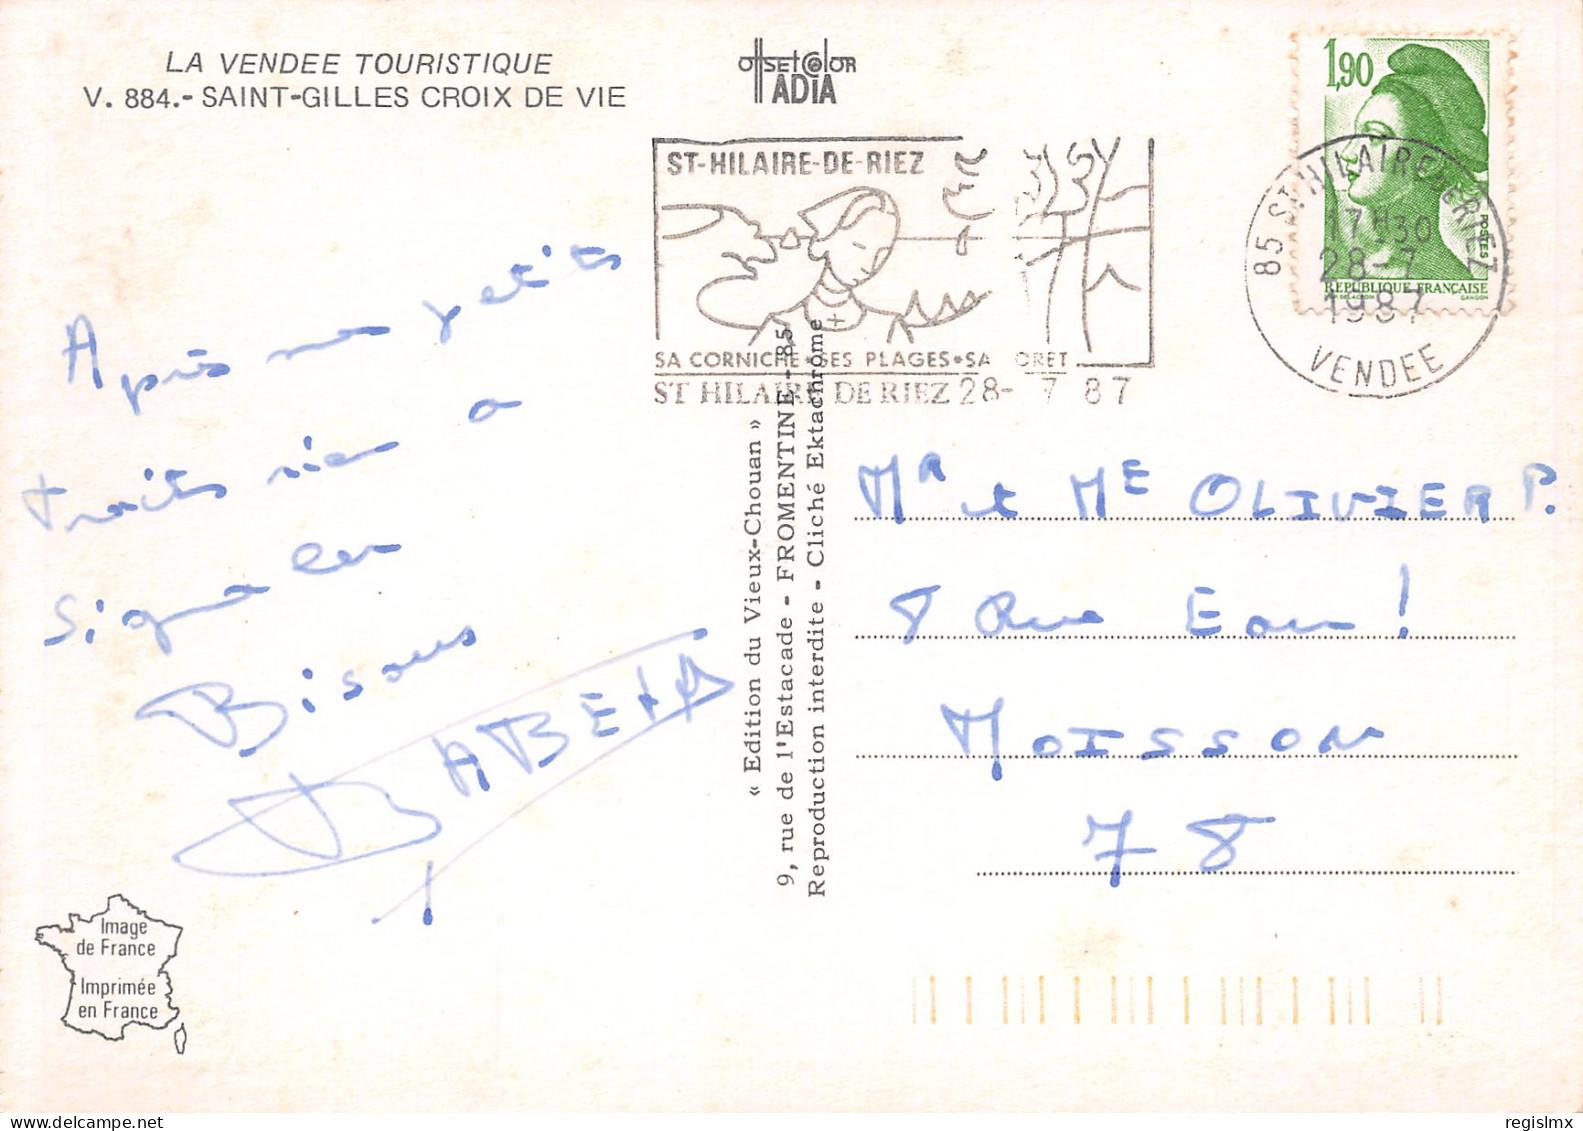 LA VENDEE TOURISTIQUE
V. 884.- SAINT-GILLES CROIX DE VIE
offset color
ADIA
1,90
POSTES
REPUBLIQUE FRANÇAISE
GANDON
ST-HILAIRE-DE-RIEZ
SA CORNICHE * SES PLAGES * SA ORET
ST HILAIRE DE RIEZ 28- 7 87
85 ST HILAIRE DE RIEZ
17H30
28-7
1987
VENDEE
Après mes petits
traits rien a
signaler
Bisous
BABETH
« Edition du Vieux-Chouan »
9, rue de l'Estacade - FROMENTINE - 85
Reproduction interdite - Cliché Ektachrome
Mr et Me OLIVIER P.
8 Rue Eau !
MOISSON
78
Image
de France
Imprimée
en France
regislmx